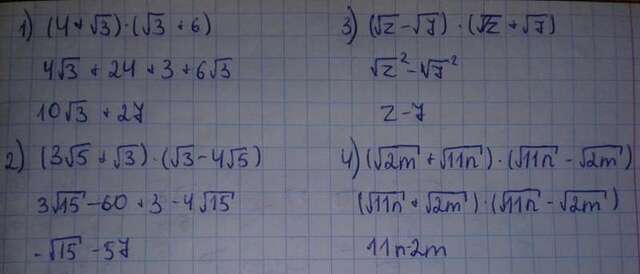 1) (4+√3)·(√3+6)
4√3 + 24 + 3 + 6√3
10√3 + 27
2) (3√5 + √3)·(√3-4√5)
3√15 - 60 + 3 - 4√15
-√15 - 57
3) (√z - √7)·(√z + √7)
√z² - √7²
z - 7
4) (√2m + √11n)·(√11n - √2m)
(√11n + √2m)·(√11n - √2m)
11n-2m